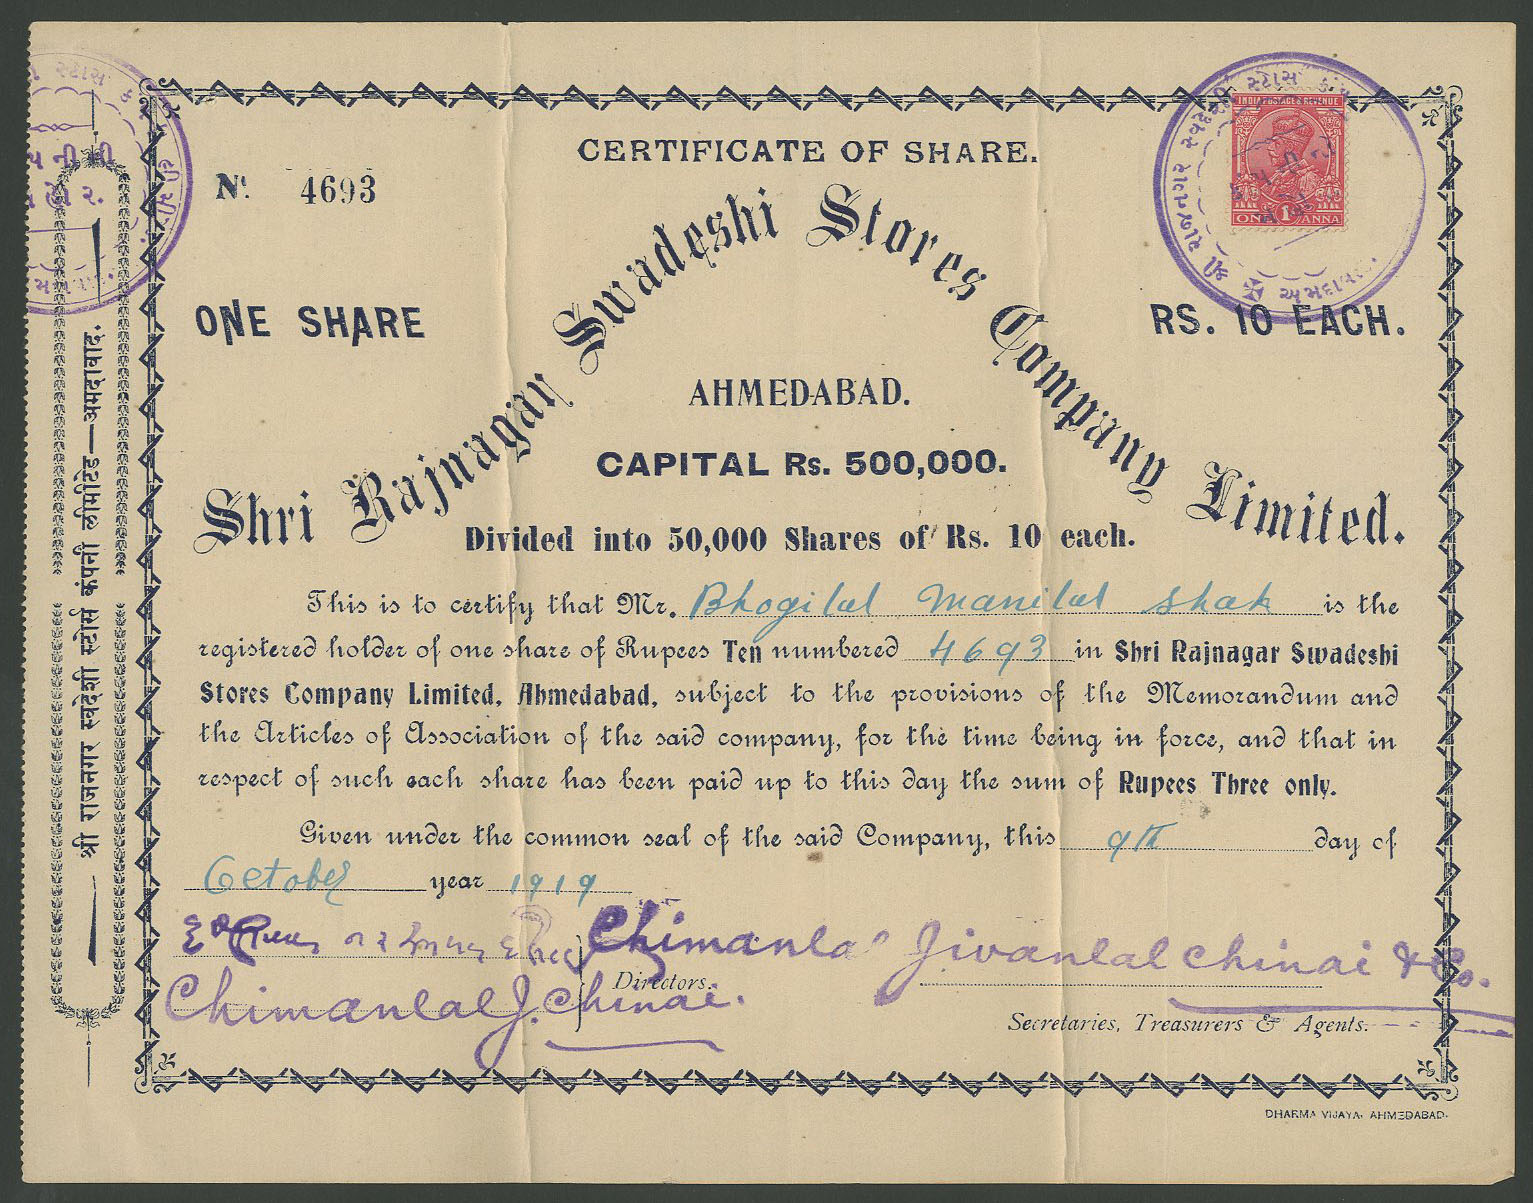 CERTIFICATE OF SHARE.
Nº 4693
Shri Rajnagar Swadeshi Stores Company Limited.
ONE SHARE
RS. 10 EACH.
INDIA POSTAGE & REVENUE
ONE 1 ANNA
શ્રી રાજનગર સ્વદેશી સ્ટોર્સ
અમદાવાદ.
AHMEDABAD.
CAPITAL Rs. 500,000.
Divided into 50,000 Shares of Rs. 10 each.
This is to certify that Mr. Bhogilal Manilal Shah is the
registered holder of one share of Rupees Ten numbered 4693 in Shri Rajnagar Swadeshi
Stores Company Limited, Ahmedabad, subject to the provisions of the Memorandum and
the Articles of Association of the said company, for the time being in force, and that in
respect of such each share has been paid up to this day the sum of Rupees Three only.
Given under the common seal of the said Company, this 9th day of
October year 1919
Chimanlal Jivanlal Chinai & Co.
Directors.
Chimanlal J. Chinai.
Secretaries, Treasurers & Agents.
DHARMA VIJAYA, AHMEDABAD.
श्री राजनगर स्वदेशी स्टोर्स कंपनी लीमीटेड—अमदावाद.